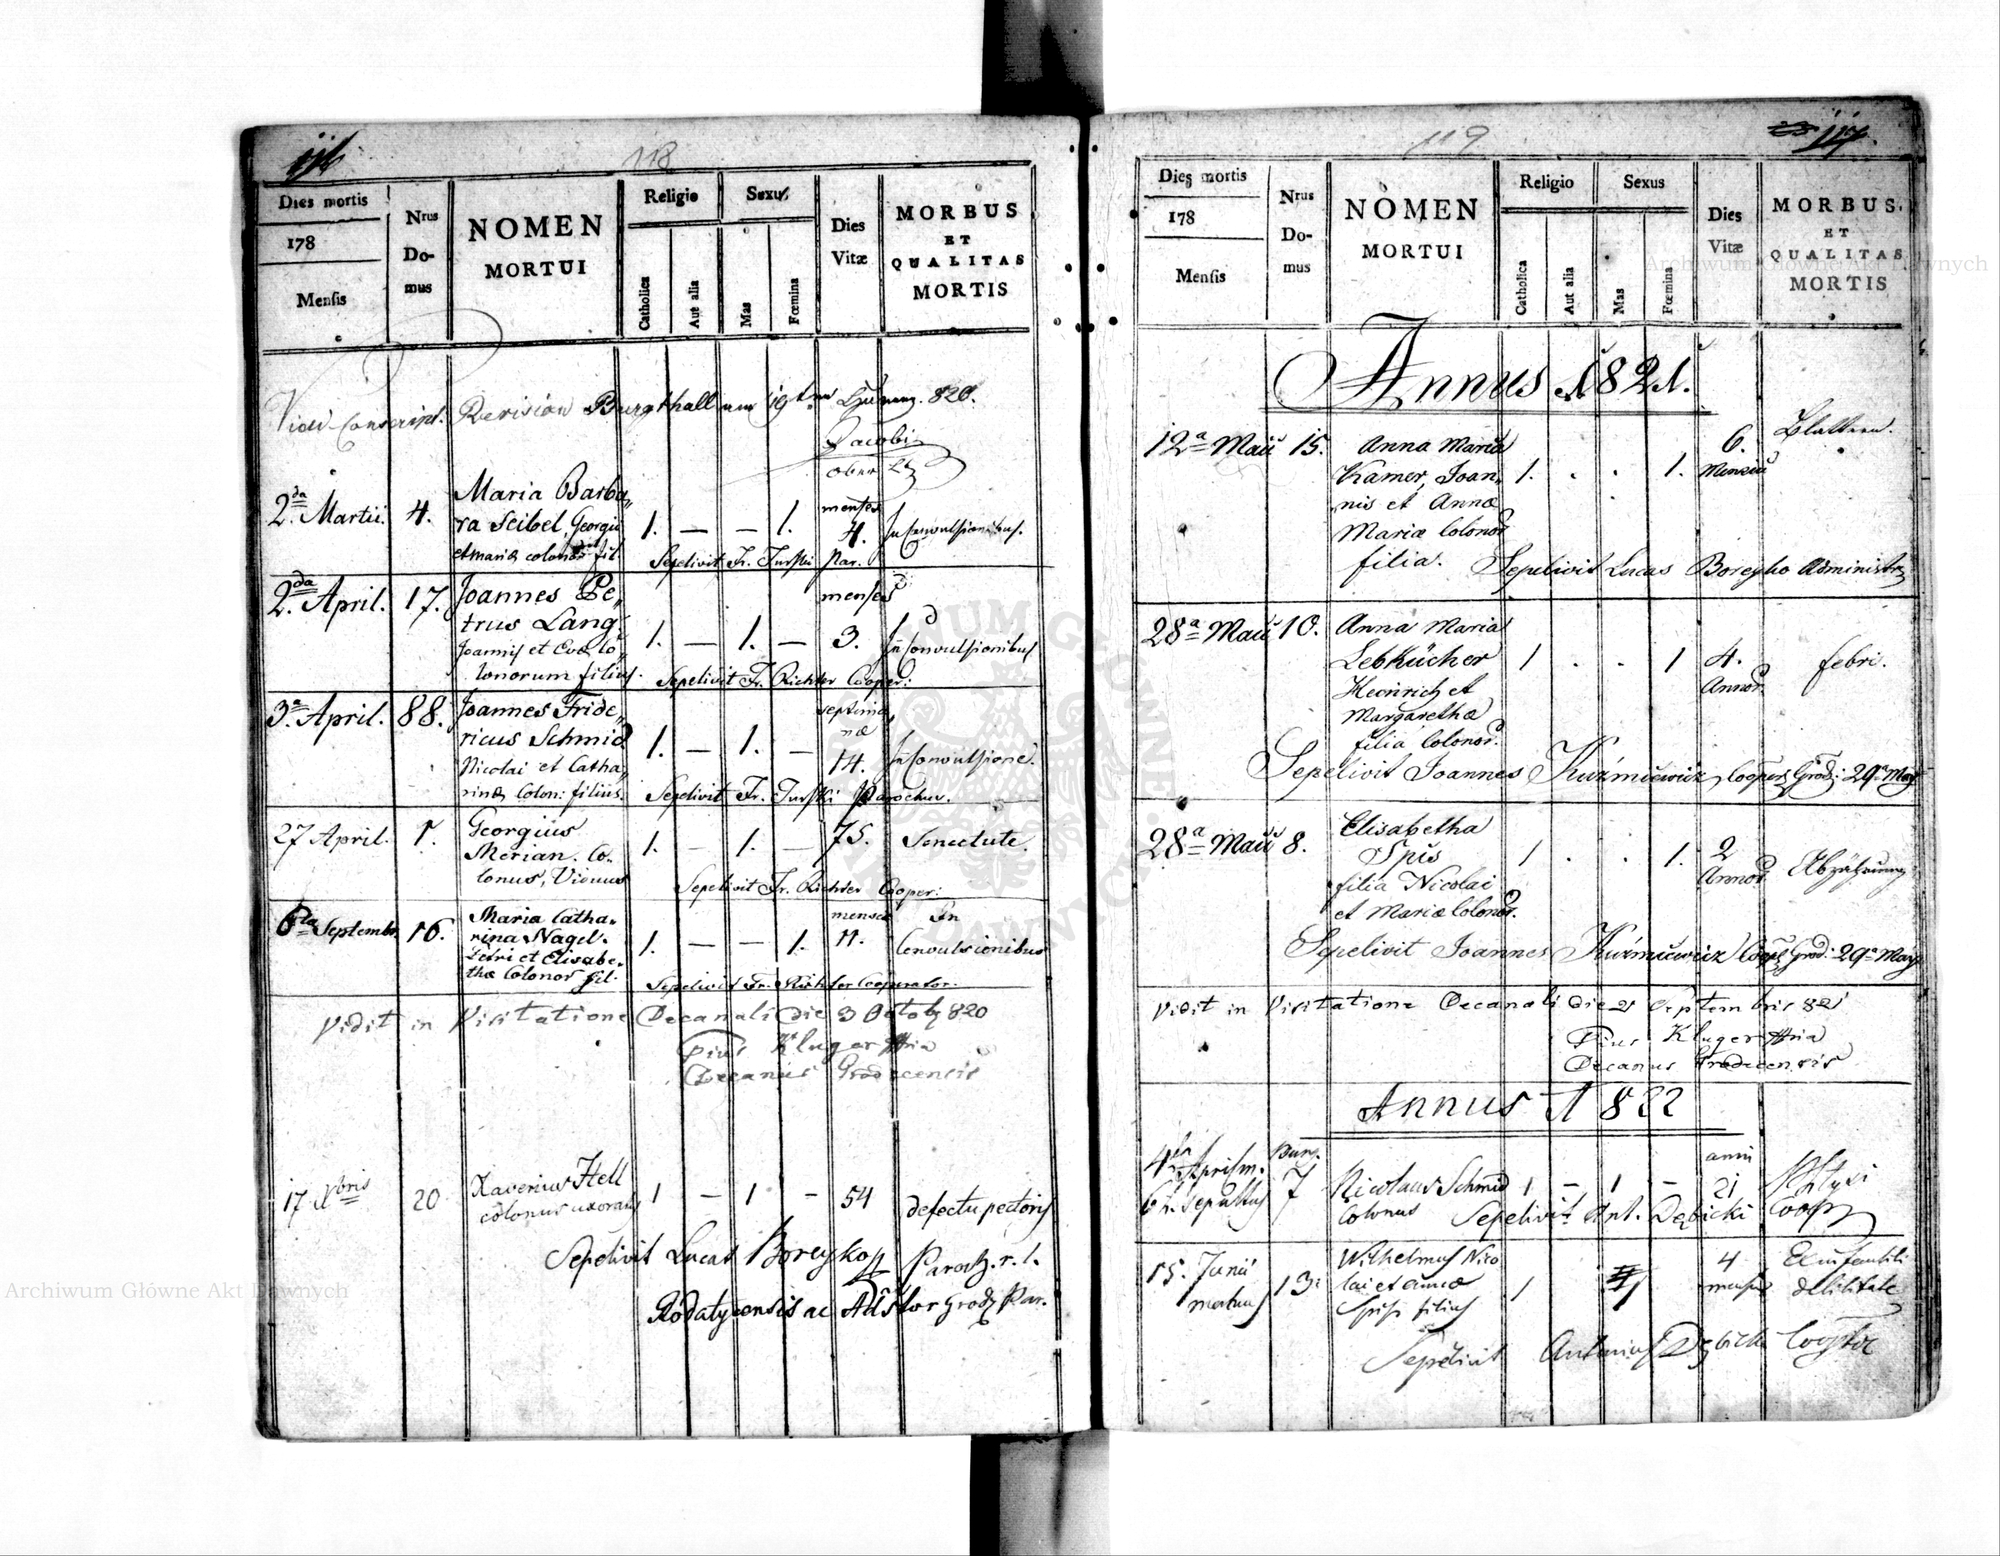 116
118
Dies mortis
178
Mensis
Nrus
Do-
mus
NOMEN
MORTUI
Religio
Catholica
Aut alia
Sexus
Mas
Fœmina
Dies
Vitæ
MORBUS
ET
QUALITAS
MORTIS
Vidi Conscript. Revision Burgthall am 19ten 820.
Jacobi
2da Martii. 4. Maria Barba„ menses
ra Seibel, Georgii 1. — — 1. 4. In Convulsionibus.
et Mariæ colonor fil. Sepelivit Fr. Turski Par.
2da April. 17. Joannes Pe„ menses
trus Lang. 1. — 1. — 3. In Convulsionibus
Joannis et Evæ Co
lonorum filius. Sepelivit Fr. Richter Cooper:
3a April. 88. Joannes Fride„ septima
ricus Schmid næ
Nicolai et Catha 1. — 1. — 14. In Convulsione.
rinæ Colon: filius. Sepelivit Fr. Turski Parochus.
27 April. 1. Georgius 1. — 1. — 75. Senectute.
Merian. Co-
lonus, Viduus Sepelivit Fr. Richter Cooper:
6ta Septembr. 16. Maria Catha- menses In
rina Nagel. 1. — — 1. 11. Convulsionibus
Petri et Elisabe-
thæ Colonor fil. Sepelivit Fr. Richter Cooperator.
Vidit in Visitatione Decanali die 3 Octob 820
Pius Kluger
Decanus Grodecensis
17 Xbris 20 Xaverius Hell 1 — 1 — 54 defectu pectoris
colonus uxoratus
Sepelivit Lucas Boreyko Paroch. r. l.
Rodatycensis ac Adstor Grod Par.
119
117.
Dies mortis
178
Mensis
Nrus
Do-
mus
NOMEN
MORTUI
Religio
Catholica
Aut alia
Sexus
Mas
Fœmina
Dies
Vitæ
MORBUS
ET
QUALITAS
MORTIS
Annus 1821.
12a Maii 15. Anna Maria 6. Blattern.
Kamer, Joan„ 1. . . 1. Mensiu
nis et Annæ
Mariæ Colonor
filia. Sepelivit Lucas Boreyko Administr
28a Maii 10. Anna Maria
Lebkücher 1 . . 1 4. febri.
Heinrich et Annor.
Margarethæ
filia Colonor.
Sepelivit Joannes Kuźmiewicz, Cooper Grod: 29a May
28a Maii 8. Elisabetha
Spis 1 . . 1. 2 Abzährung
filia Nicolai Annor.
et Mariæ Colonor.
Sepelivit Joannes Kuźmiewicz Coop Grod: 29a May
Vidit in Visitatione Decanali die 21 Septembris 821
Pius Kluger
Decanus Grodecensis
Annus 1822
4ta Aprilis m. Burg. anni
6 h. sepultus 7 Nicolaus Schmid 1 — 1 — 21 Phtysi
Colonus Sepelivit Ant. Dębicki Coop
15. Junii 13. Wilhelmus Nico 4 Ex infantili
mortuus lai et Annæ 1 1 menses debilitate
Spiss filius
Sepelivit Antonius Dębicki Cooptor
Archiwum Główne Akt Dawnych
Archiwum Główne Akt Dawnych
ARCHIWUM GŁÓWNE AKT DAWNYCH